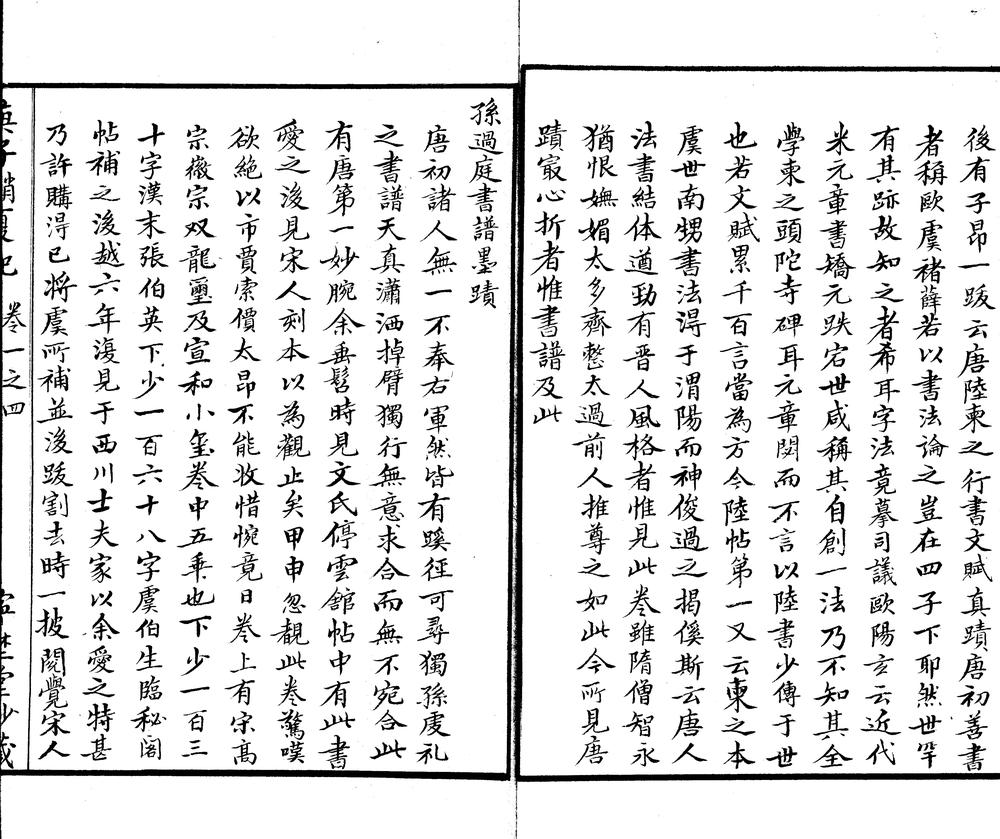 後有子昂一跋云唐陸柬之行書文賦真蹟唐初善書
者稱歐虞褚薛若以書法論之豈在四子下耶然世罕
有其跡故知之者希耳字法竟摹司議歐陽玄云近代
米元章書矯亢跌宕世咸稱其自創一法乃不知其全
學柬之頭陀寺碑耳元章閟而不言以陸書少傳于世
也若文賦累千百言當為方今陸帖第一又云柬之本
虞世南甥書法得于渭陽而神俊過之揭傒斯云唐人
法書結体遒勁有晋人風格者惟見此卷雖隋僧智永
猶恨嫵媚太多齊整太過前人推尊之如此今所見唐
蹟㝡心折者惟書譜及此
孫過庭書譜墨蹟
唐初諸人無一不奉右軍然皆有蹊徑可尋獨孫虔礼
之書譜天真瀟洒掉臂獨行無意求合而無不宛合此
有唐第一妙腕余垂髫時見文氏停雲館帖中有此書
愛之後見宋人刻本以為觀止矣甲申忽覩此卷驚嘆
欲絕以市賈索價太昂不能收惜惋竟日卷上有宋高
宗徽宗双龍璽及宣和小玺卷中五乗也下少一百三
十字漢末張伯英下少一百六十八字虞伯生臨秘阁
帖補之後越六年復見于西川士夫家以余愛之特甚
乃許購得已将虞所補並後跋割去時一披閱覺宋人
庚子銷夏記 卷一之四